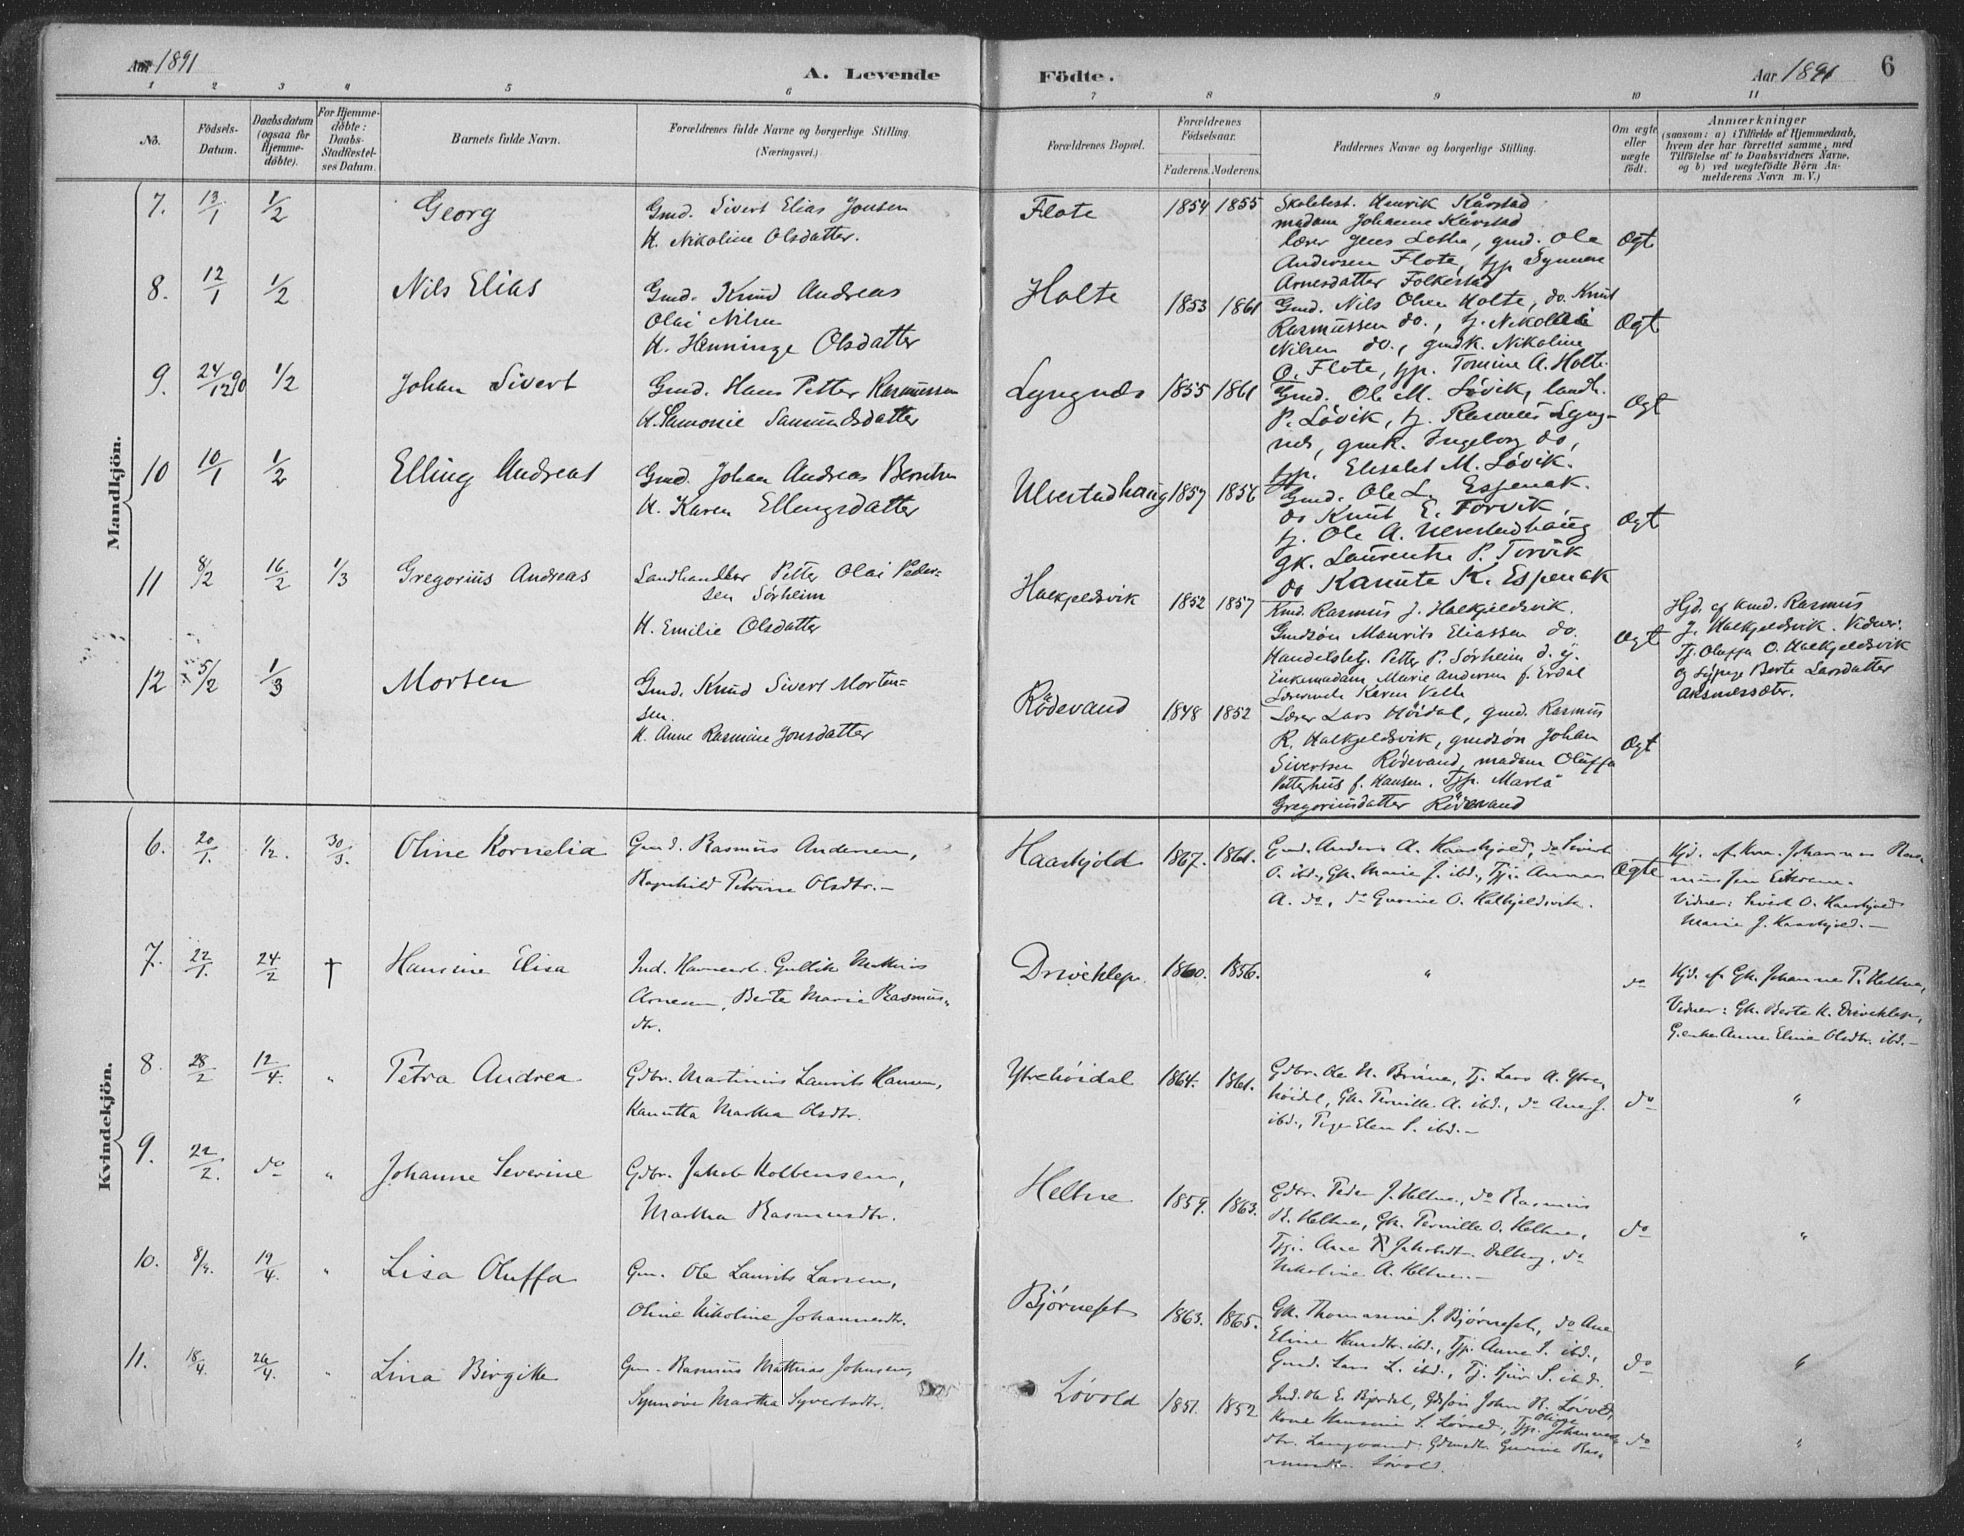 Aar 1891
A. Levende
Födte.
Aar 1891
6
1 2 3 4 5 6 7 8 9 10 11
No.
Födsels-
Datum.
Daabsdatum
(ogsaa for
Hjemme-
döbte).
For Hjemme-
döbte:
Daabs-
Stadfæstel-
ses Datum.
Barnets fulde Navn.
Forældrenes fulde Navne og borgerlige Stilling.
(Næringsvei.)
Forældrenes Bopæl.
Forældrenes
Födselsaar.
Faderens. Moderens.
Faddernes Navne og borgerlige Stilling.
Om ægte
eller
uægte
födt.
Anmærkninger
(saasom: a) i Tilfælde af Hjemmedaab,
hvem der har forrettet samme, med
Tilföielse af to Daabsvidners Navne,
og b) ved uægtefödte Börn An-
melderens Navn m. V.)
Mandkjön.
7. 13/1 1/2 Georg
Gmd. Sivert Elias Jonsen
H. Nikoline Olsdatter.
Flote 1854 1855
Skolebest. Henrik Kårstad
madam Johanne Kårstad
lærer Jens, gmd. Ole
Andersen Flote, Synneve
Arnesdatter Folkestad
Ægt
8. 12/1 1/2 Nils Elias
Gmd. Knud Andreas
Olai Nilsen
H. Henninge Olsdatter
Holte 1853 1861
Gmd. Nils Olsen Holte, do. Knut
Rasmussen do., Nikolai
Nilsen do., gmdk. Nikoline
O. Flote, Tomine A. Holte.
Ægt
9. 24/12 90 1/2 Johan Sivert
Gmd. Hans Petter Rasmussen
H. Samonie Samundsdatter
Lyngnæs 1855 1861
Gmd. Ole M. Løvik, landh.
P. Løvik, tj. Rasmus Lyng-
nes, gmdk. Ingeborg do,
Elisabet M. Løvik.
Ægt
10 10/1 1/2 Elling Andreas
Gmd. Johan Andreas Berntsen
H. Karen Ellingsdatter
Ulvestadhaug 1857 1856
Gmd. Ole L. Espenak.
do Knut E. Torvik
tj. Ole A. Ulvestadhaug
gk. Laurentse P. Torvik
do Kanute K. Espenak
Ægt
11 8/2 16/2 1/3 Gregorius Andreas
Landhandler Petter Olai Peder-
sen Sørheim
H. Emilie Olsdatter
Halkjeldsvik 1852 1857
Kmd. Rasmus J. Halkjeldsvik.
Gmdsøn Maurits Eliassen do.
Handelsbetj. Petter P. Sørheim d.y.
Enkemadam Marie Andersen f. Erdal
Lærerinde Karen Velle
Ægt
Hjd. af Kmd. Rasmus
J. Halkjeldsvik. Vidner:
Tj. Oluffa O. Halkjeldsvik
og Sypige Berte Larsdatter
Aksnessæter.
12 5/2 1/3 Morten
Gmd. Knud Sivert Morten-
sen.
H. Anne Rasmine Jonsdatter
Rödevand 1848 1852
Lærer Lars Höidal, gmd. Rasmus
R. Halkjeldsvik, gmdsön Johan
Sivertsen Rödevand, madam Oluffa
Petterhus f. Hansen. Tjp. Maria
Gregoriusdatter Rödevand
Ægt
Kvindekjön.
6. 20/1. 1/2. 30/3. Oline Kornelia
Gmd. Rasmus Andersen,
Ragnhild Petrine Olsdtr.–
Haaskjold 1867. 1861.
Gmd. Anders A. Haaskjold, do Sivert
O. ibd., Gk. Marie J. ibd., Tjpi. Anna
A. do, do Gurine O. Halkjeldsvik.
Ægte
Hjd. af Kmd. Johannes Ras-
mussen Eiksem.
Vidner: Sivert O. Haaskjold
Marie J. Haaskjold.–
7. 22/1. 24/2 † Hansine Elisa
Ind. Gullik Mathias
Arnesen, Berte Marie Rasmus-
dtr.
Driveklep. 1860. 1856.
"
do
Hjd. af Gk. Johanne P. Heltne,
Vidner: Gk. Berte K. Driveklep,
G.enke Anne Eline Olsdtr. ibd.–
8. 28/2 12/4. " Petra Andrea
Gdbr. Martinus Laurits Hansen,
Kanutta Martha Olsdtr.
Ytrehöidal 1864. 1861.
Gdbr. Ole N. Brune, Tj. Lars A. Ytre-
höidal, Gk. Pernille A. ibd., do Ane J.
ibd., Pige Elen S. ibd.–
do
"
9. 22/2. do " Johanne Severine
Gdbr. Jakob Kolbensen,
Martha Rasmusdtr.
Heltne 1859. 1863.
Gdbr. Peder J. Heltne, do Rasmus
R. Heltne, Gk. Pernille O. Heltne,
Tjpi. Ane Jakobsdtr., do
Nikoline A. Heltne.–
do
"
10. 8/4. 19/4. " Lisa Oluffa
Gm. Ole Laurits Larsen,
Oline Nikoline Johannesdtr.
Bjørneset 1863. 1865.
Gk. Thomasine J. Bjørneset, do Ane
Eline Knudtr. ibd., Tjp. Anne S. ibd.,
Gmd. Lars L. ibd., Tj. S. ibd.
do
"
11. 18/4. 26/4. " Lina Birgitte
Gm. Rasmus Mathias Johnsen,
Synnöve Martha Syvertsdtr.
Løvold 1851. 1852
Ind. Ole E. Bjørdal, Gdsøn John R. Løvold,
Kone Hansine S. Løvold, Tjp. Oline Johannes-
dtr. Langvand, Gdmdtr. Gurine Ras-
musdtr. Løvold.
do
"